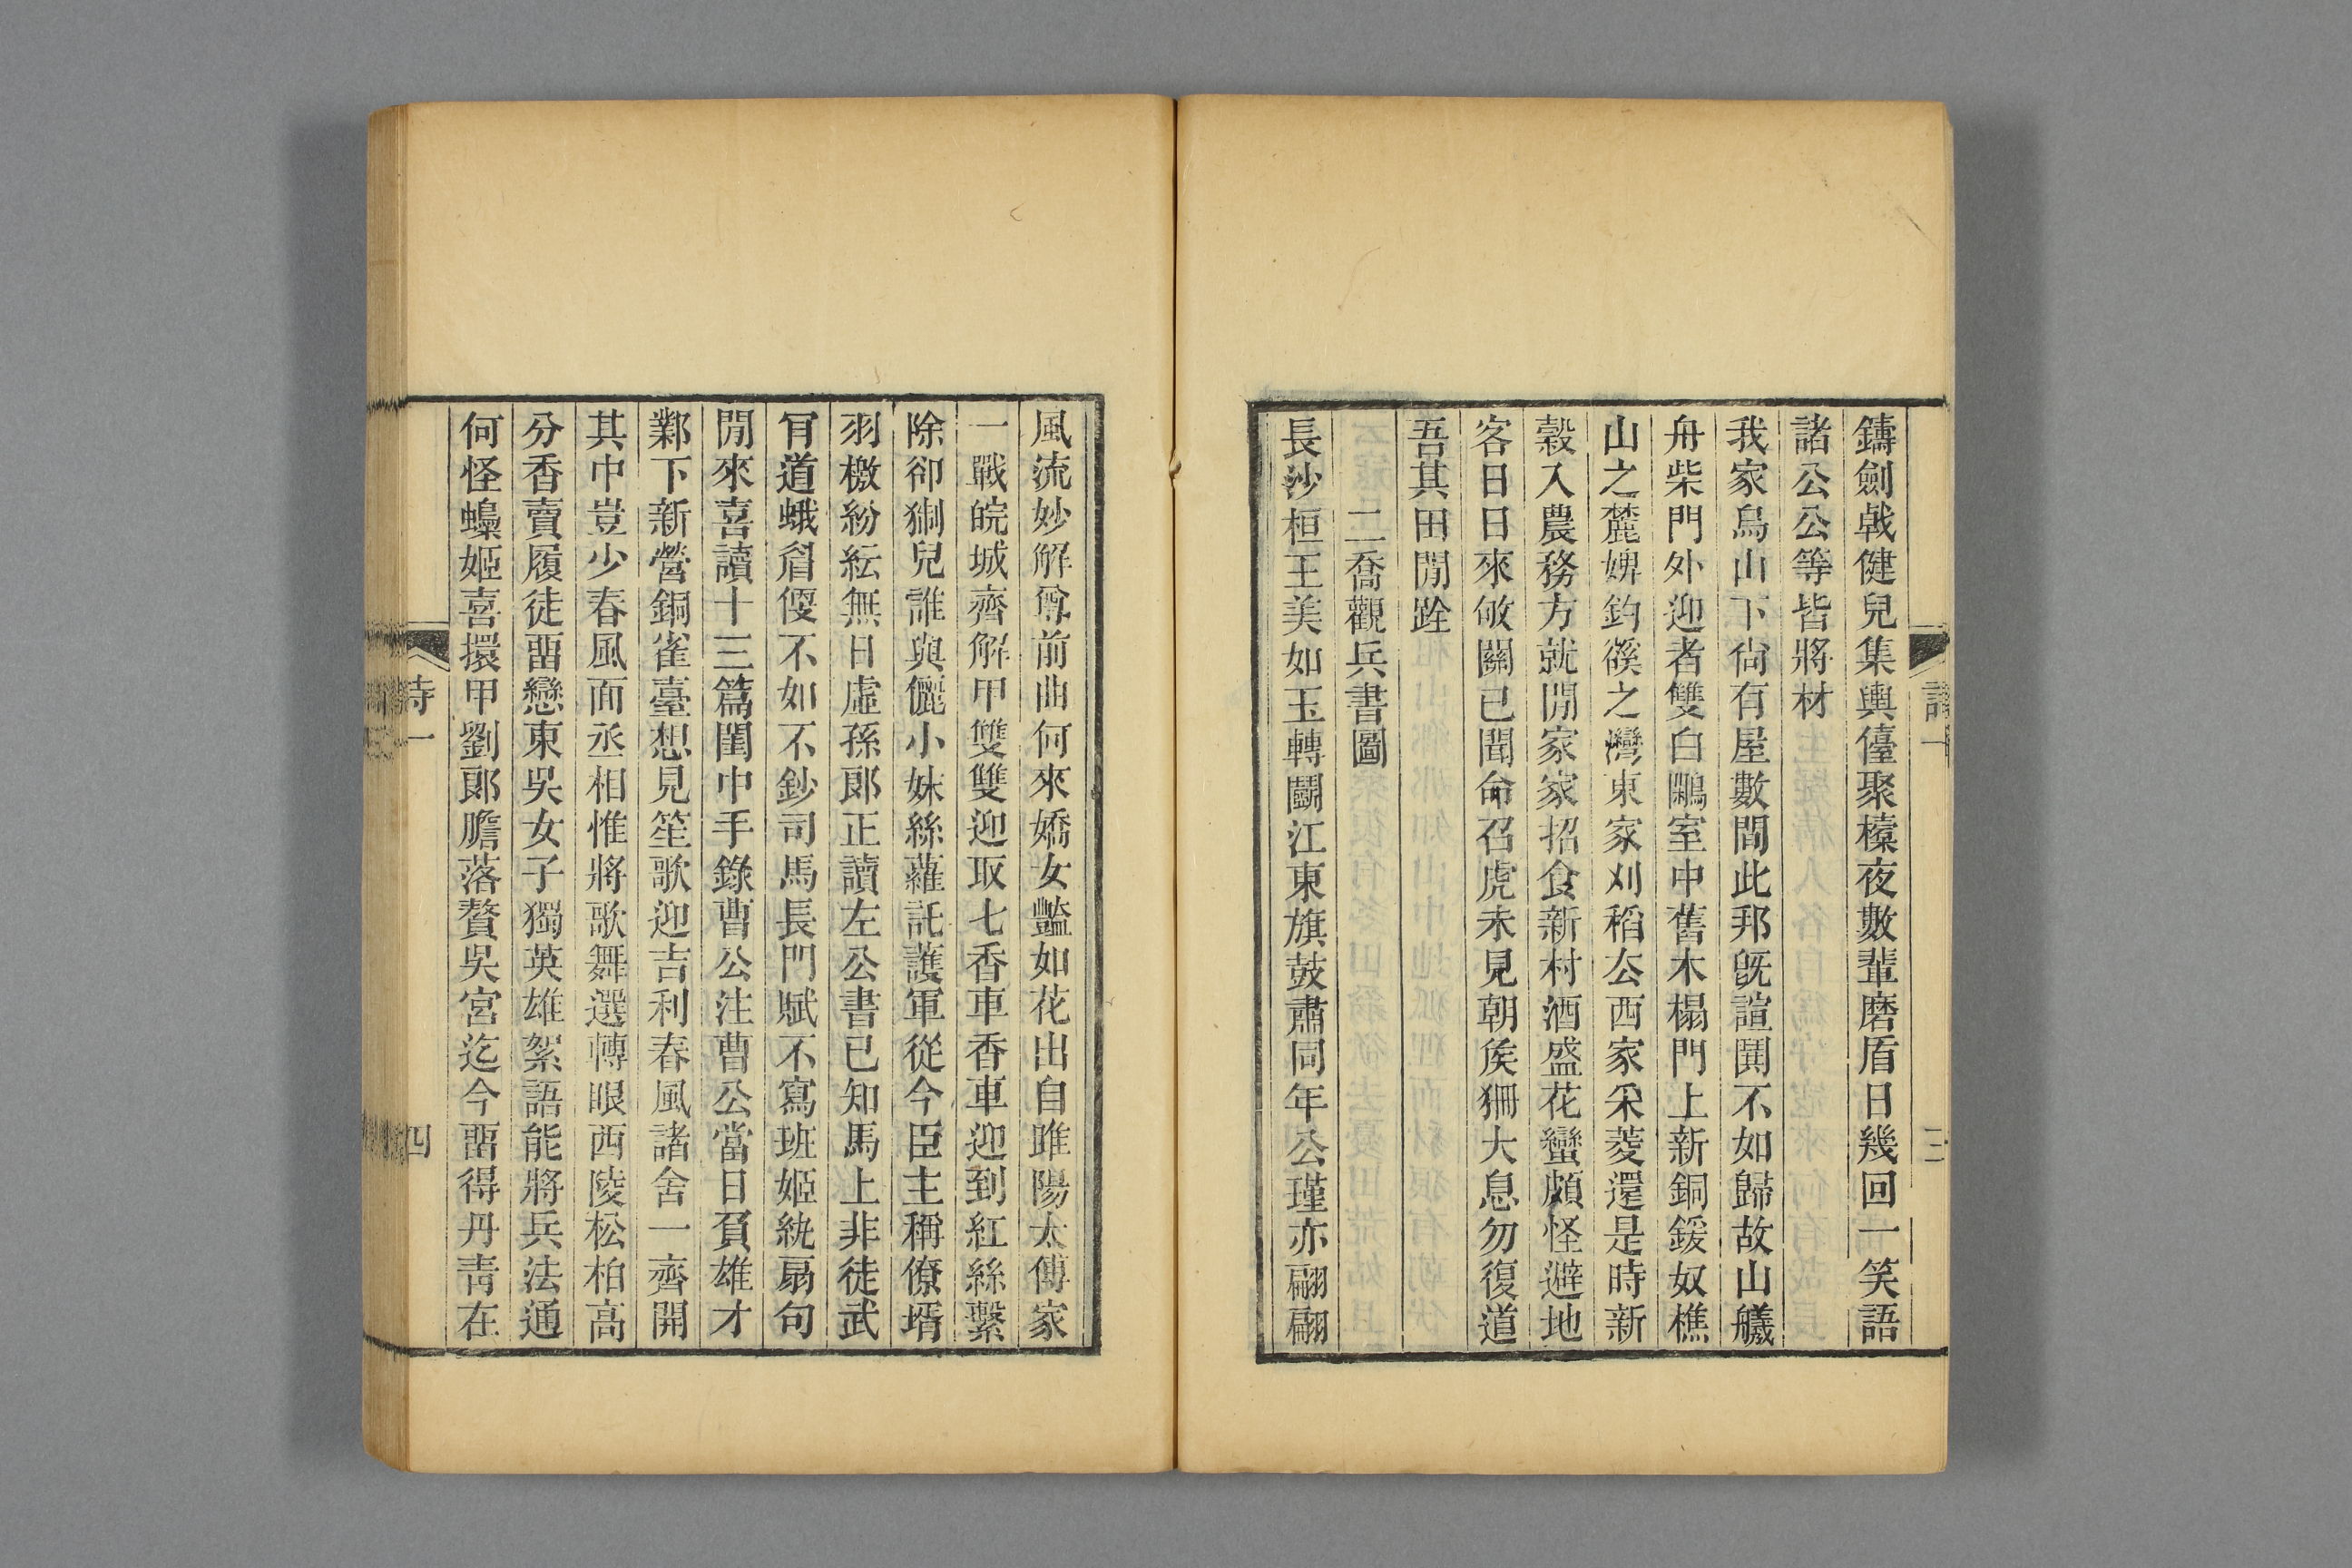 鑄劍戟健兒集輿儓聚榛夜數輩磨盾日幾回一笑語
諸公公等皆將材
我家烏山下尙有屋數間此邦旣諠鬨不如歸故山艤
舟柴門外迎者雙白鷴室中舊木榻門上新銅鍰奴樵
山之麓婢釣磎之灣東家刈稻厺西家采菱還是時新
穀入農務方就閒家家招食新村酒盛花蠻頗怪避地
客日日來敂關已聞命召虎未見朝矦狦大息勿復道
吾其田閒跧
二喬觀兵書圖
長沙桓王美如玉轉鬭江東旗鼓肅同年公瑾亦翩翩
風流妙解尊前曲何來嬌女豔如花出自雎陽太傅家
一戰皖城齊解甲雙雙迎取七香車香車迎到紅絲繫
除卻猘兒誰與儷小妹絲蘿託護軍從今臣主稱僚壻
羽檄紛紜無日虛孫郞正讀左公書已知馬上非徒武
肎道蛾眉偃不如不鈔司馬長門賦不寫班姬紈扇句
閒來喜讀十三篇閨中手錄曹公注曹公當日負雄才
鄴下新營銅雀臺想見笙歌迎吉利春風諸舍一齊開
其中豈少春風面丞相惟將歌舞選轉眼西陵松柏高
分香賣履徒畱戀東吳女子獨英雄絮語能將兵法通
何怪蠑姬喜擐甲劉郞膽落贅吳宮迄今畱得丹靑在
詩一
四